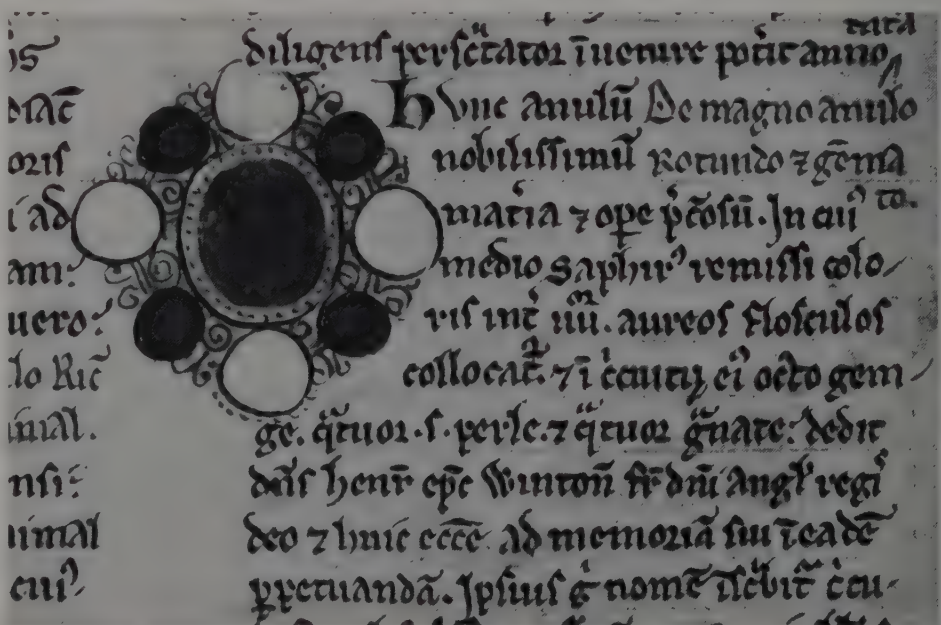 is
diac̄
oris
i ad
am:
uero:
lo Ric̄
imal.
nsi:
nimal
cuiꝰ
tata
diligens persc̄tator īuenire pot̄it anno
Hunc anulū De magno anulo
nobilissimū Rotundo ⁊ gēma
to.
mat̓ia ⁊ oꝑe p̓c̄osū. In cuiꝰ
medio saphirꝰ remissi colo
ris int̓ iiii. aureos flosculos
collocat᷑. ⁊ ī c̓cuitu eiꝰ octo gem
ge. qͣtuor .s. perle. ⁊ qͣtuor gͣnate: dedit
dn̄s henr̄ ep̄c Wintoñ fr̄ dn̄i Angl̄ regis
deo ⁊ huic ecc̄e ad memoriā sui ī eadē
ꝑpetuandā. Ipsius g̓ nomē īsc̓bit᷑ c̓cu